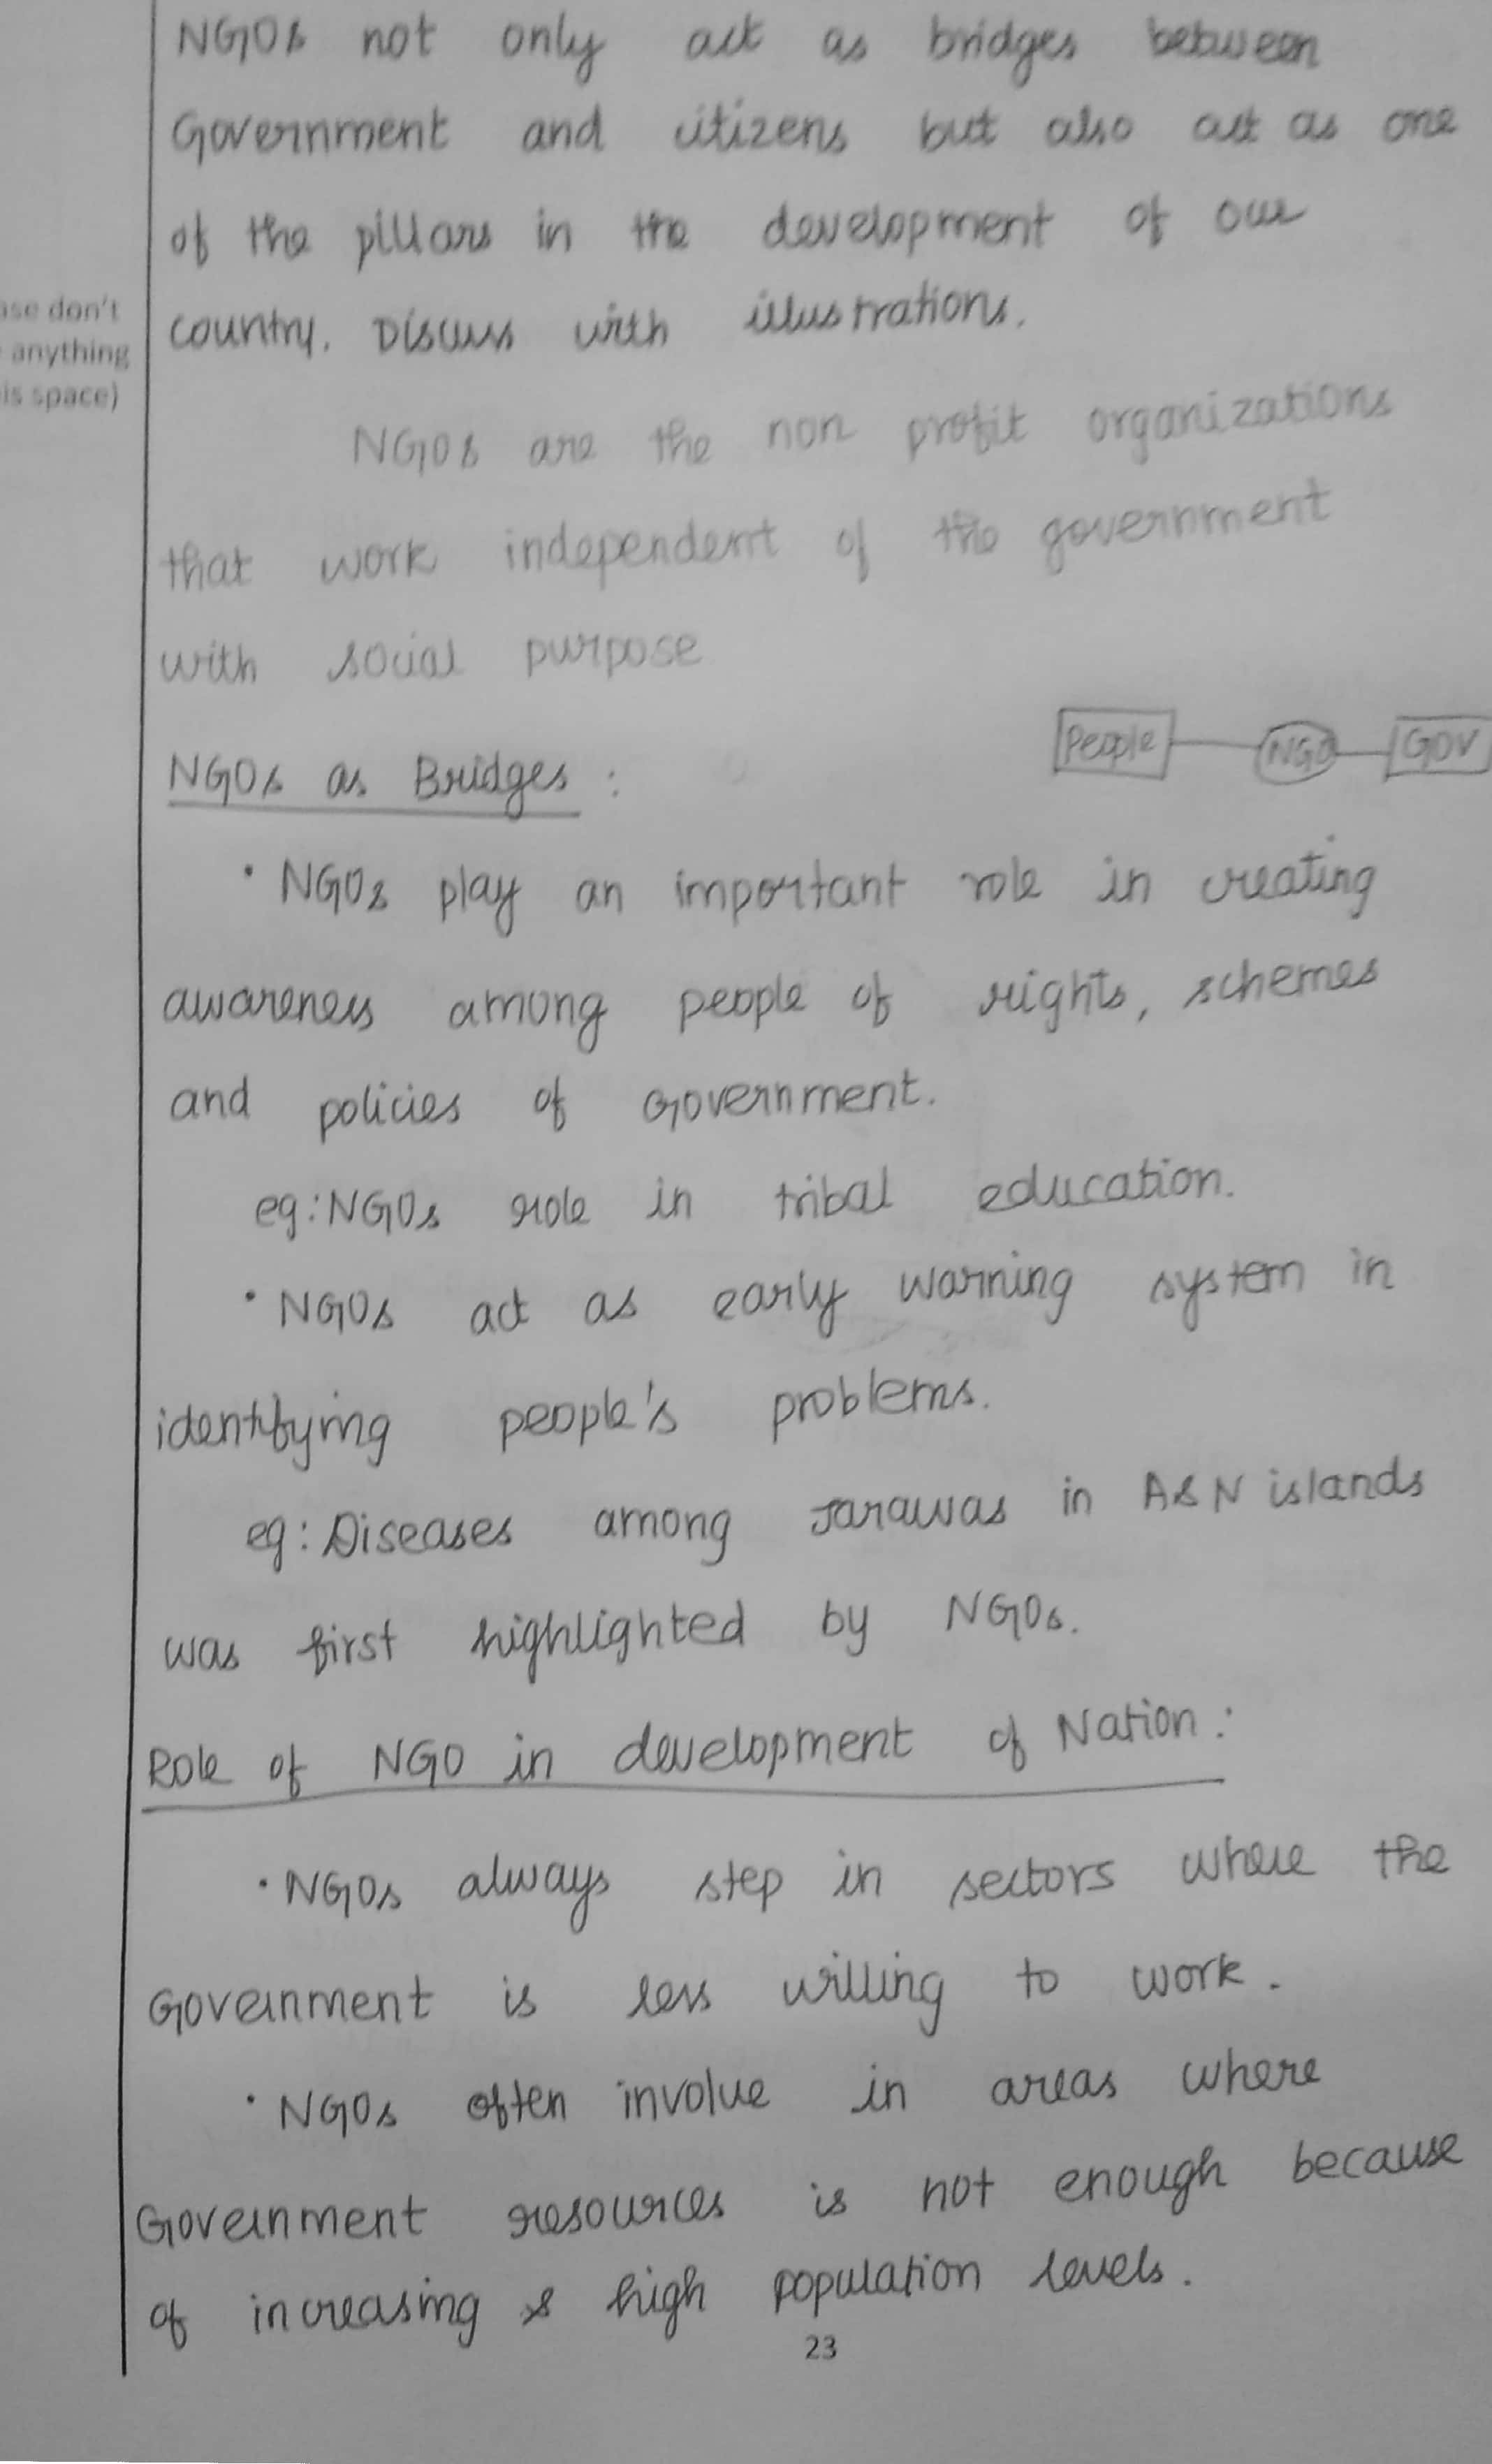 NGOs not only act as bridges between
Government and citizens but also act as one
of the pillars in the development of our
country. Discuss with illustrations.
ase don't
anything
is space)
NGOs are the non profit organizations
that work independent of the government
with social purpose
People NGO GOV
NGOs as Bridges :
• NGOs play an important role in creating
awareness among people of rights, schemes
and policies of Government.
eg: NGOs role in tribal education.
• NGOs act as early warning system in
identifying people's problems.
eg: Diseases among Jarawas in A&N islands
was first highlighted by NGOs.
Role of NGO in development of Nation :
• NGOs always step in sectors where the
Government is less willing to work.
• NGOs often involve in areas where
Government resources is not enough because
of increasing & high population levels.
23